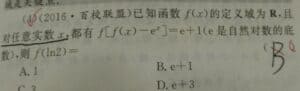 (2016·百校联盟)已知函数 f(x)的定义域为 R,且
对任意实数 x,都有 f[f(x)-eˣ]=e+1(e 是自然对数的底
数),则 f(ln2)=
A. 1 B. e+1
D. e+3
B